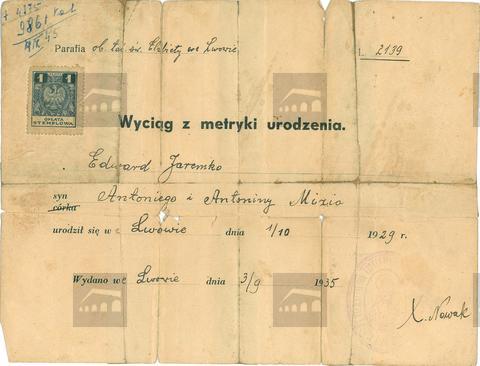 + 4775
9861 rst
Parafia ob. łac św. Elżbiety we Lwowie L. 2139
1 1
OPŁATA
STEMPLOWA
Wyciąg z metryki urodzenia.
Edward Jaremko
syn
córka Antoniego i Antoniny Mizio
urodził się we Lwowie dnia 1/10 1929 r.
Wydano we Lwowie dnia 3/9 1935
X. Nowak